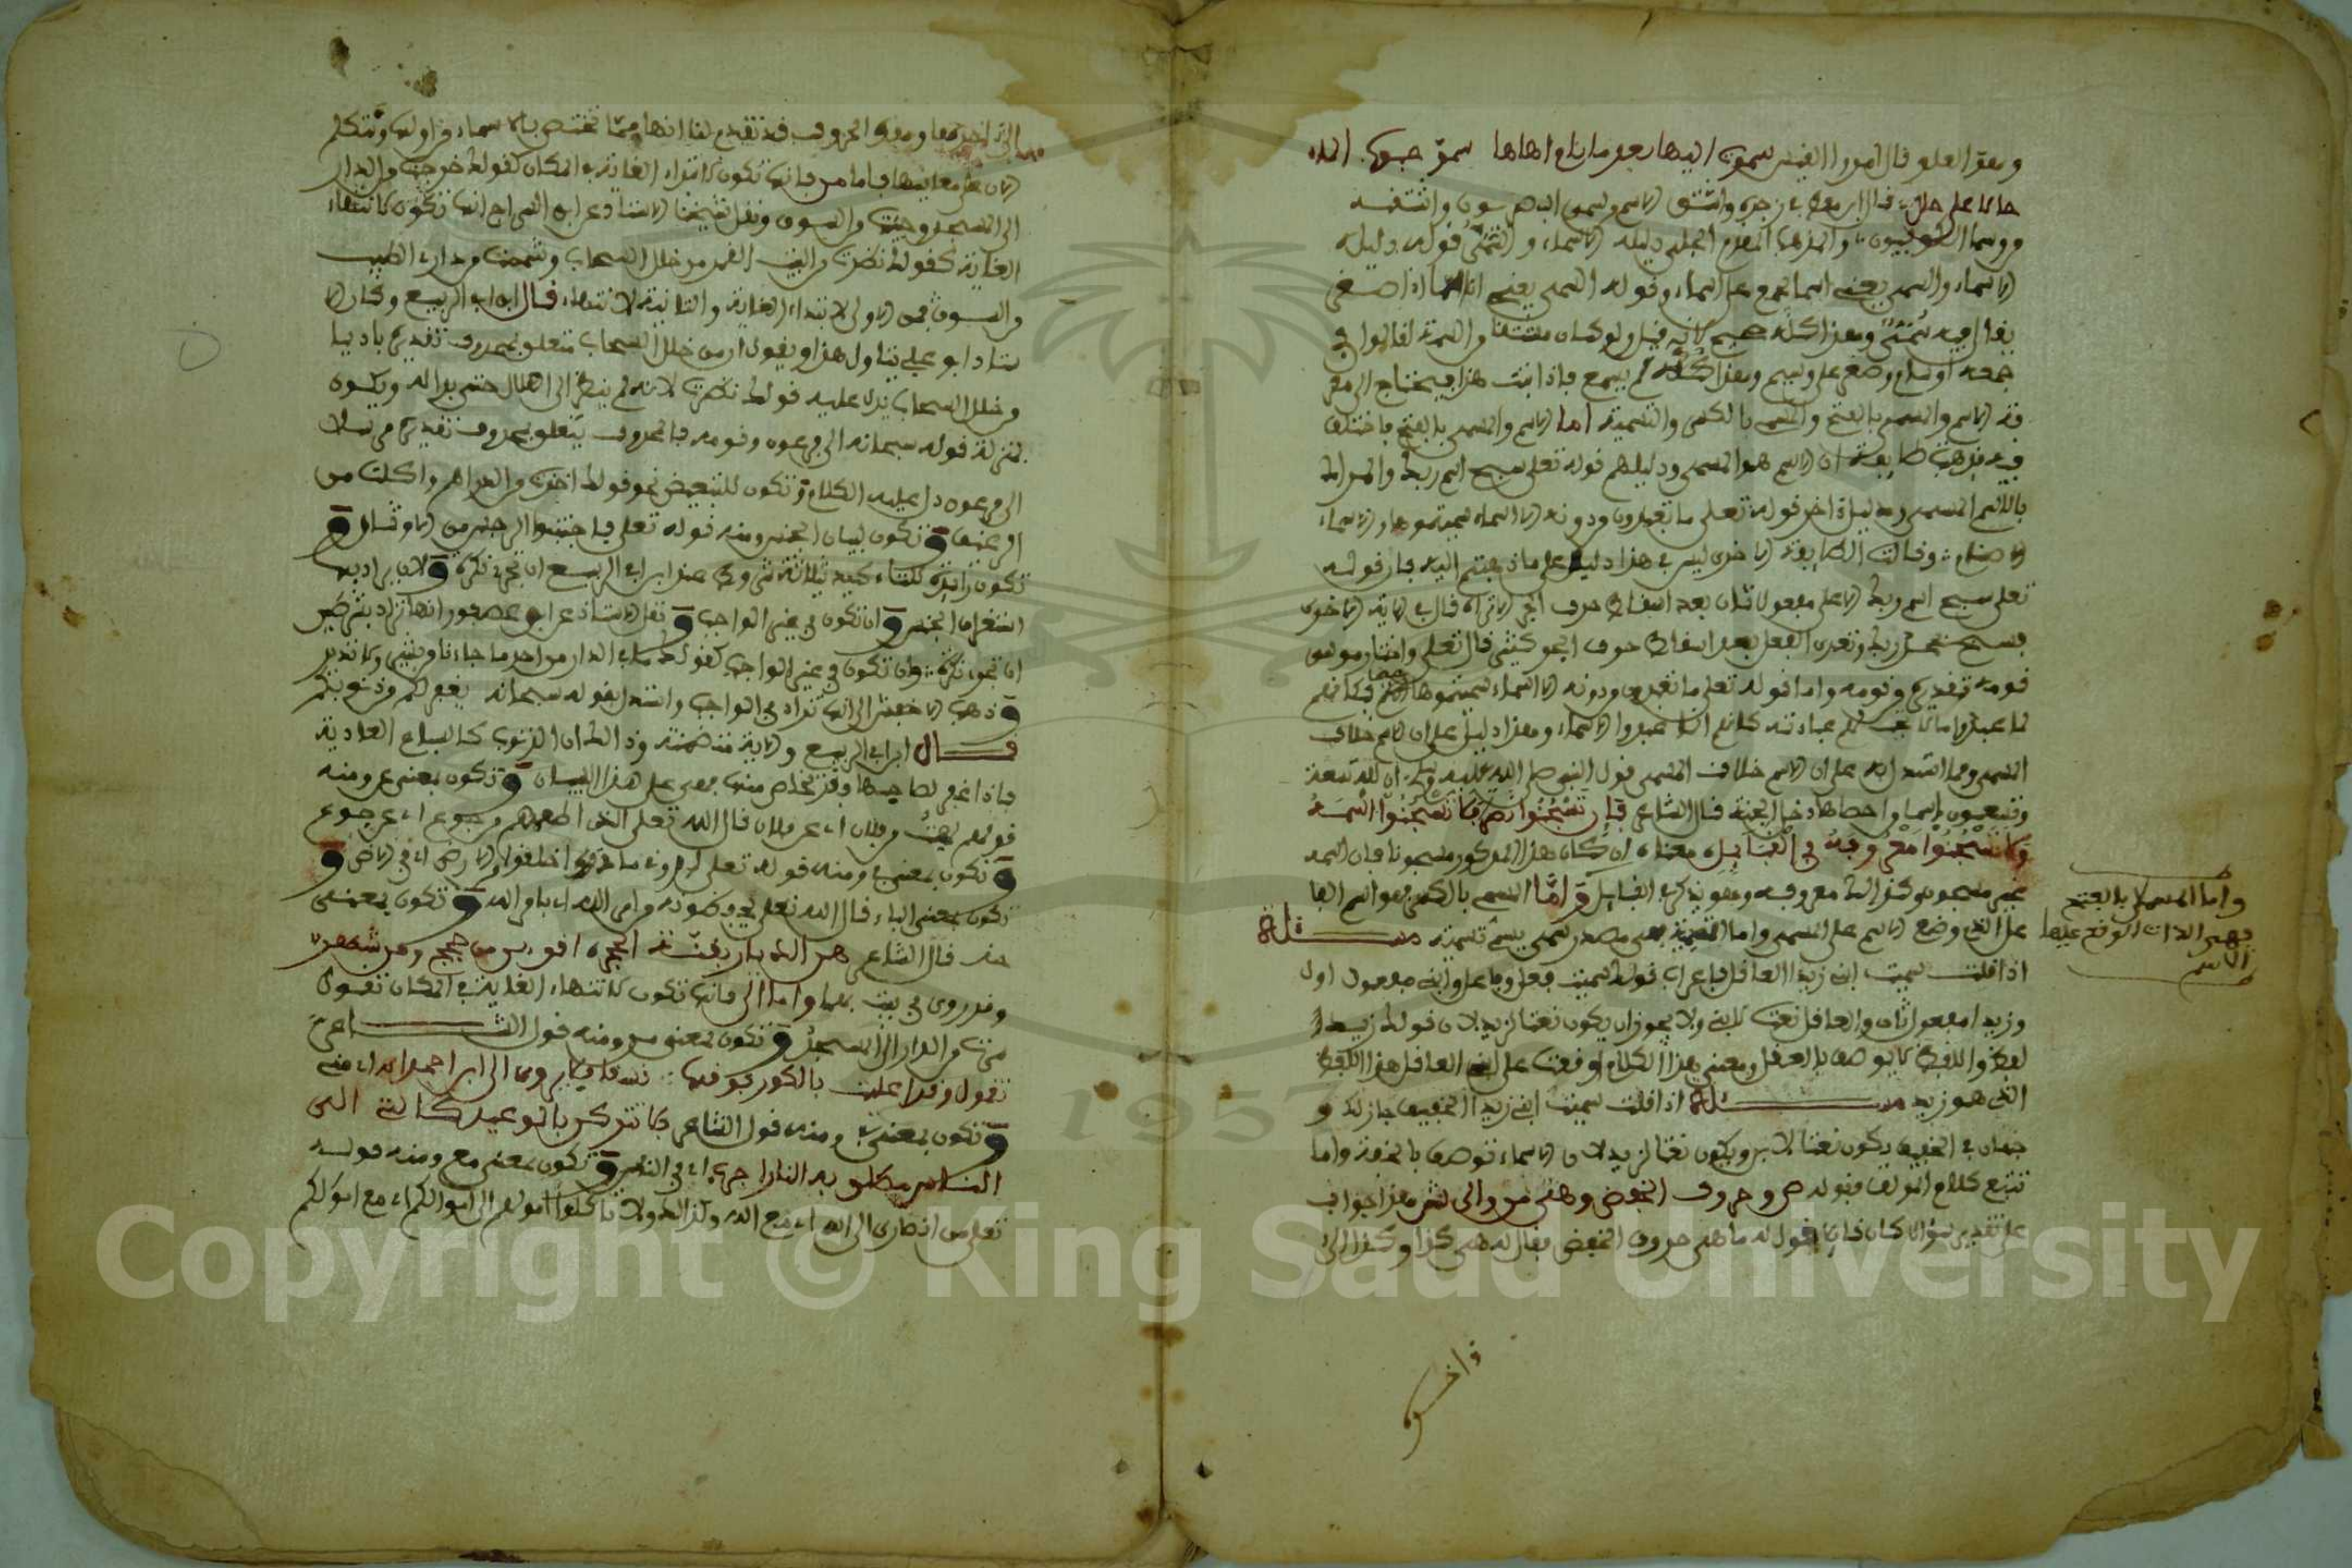 وهو العلو قال امرؤ القيس سموت اليها بعد ما نام اهلها سمو حباب الماء
حالا على حال قال ابن معط في رجزه واشتق الاسم من سمى البصريون واشتقه
من وسم الكوفيون والمذهب المقدم الجلي دليله الاسماء والسمي قوله دليله
الاسماء والسمي يعني اسما جمع على اسماء وقوله السمي يعني اذا صغر
يقال فيه سمي وهذا كله صحيح لانه قيل ولو كان مشتقا من السمة لقالوا في
جمعه اوسام وصغر على وسيم وهذا كله لم يسمع فاذا ثبت هذا فيحتاج الى معر
فة الاسم والمسمى بالفتح والمسمي بالكسر والتسمية اما الاسم والمسمى بالفتح فاختلف
فيه فذهبت طايفة ان الاسم هو المسمى ودليلهم قوله تعلى سبح اسم ربك والمراد
بالاسم المسمى ودليل اخر قوله تعلى ما تعبدون من دونه الا اسماء سميتموها والاسماء
الاصنام وقالت الطايفة الاخرى ليس في هذا دليل على ما ذهبتم اليه فان قوله
تعلى سبح اسم ربك الاعلى مفعولا ثان بعد اسقاط حرف الجر الا تراه قال في الاية الاخرى
فسبح بحمد ربك وتعدى الفعل بعد اسقاط حرف الجر كثير قال تعلى واختار موسى
قومه تقديره من قومه واما قوله تعلى ما تعبدون من دونه الا اسماء سميتموها فكانهم
لما عبدوا ما لا تجب لهم عبادته كانهم انما عبدوا الاسماء وهذا دليل على ان الاسم خلاف
المسمى ومما استدل به على ان الاسم خلاف المسمى قول النبي صلى الله عليه وسلم ان لله تسعة
وتسعون اسما من احصاها دخل الجنة قال الشاعر فان تسجنوا لا تسجنوا اسمه
ولا تسجنوا معروفه في القبايل معناه ان كان هذا المذكور مسجونا فان اسمه
غير مسجون وكذالك معروفه وهو يذكر في القبايل واما المسمي بالكسر فهو اسم الفا
عل الذي وضع الاسم على المسمى واما التسمية فهي مصدر سمى يسمي تسمية مسئلة
اذا قلت سميت ابني زيدا العاقل فاعراب قولك سميت فعل وفاعل وابني مفعول اول
وزيدا مفعول ثان والعاقل نعت لابني ولا يجوز ان يكون نعتا لزيد لان قولك زيدا
لفظ واللفظ لا يوصف بالعقل ومعنى هذا الكلام اوقعت على ابني العاقل هذا اللفظ
الذي هو زيد مسئلة اذا قلت سميت ابني زيدا الخفيف جاز لك و
جهان في الخفيف يكون نعتا لابن ويكون نعتا لزيد لان الاسماء توصف بالخفة واما
تتبع كلام المؤلف فقوله ص وحروف الخفض وهي من والى ش هذا جواب
على تقدير سؤال كان قايلا يقول له ما هي حروف الخفض فقال له هي كذا وكذا الى
واما المسمى بالفتح
فهي الذات الوقع عليها
الاسم
الى اخرها وهذه الحروف قد تقدم لنا انها مما تختص بالاسماء من اوله ونتكلم
الان على معانيها فاما من فانها تكون لابتداء الغاية في المكان كقولك خرجت من الدار
الى المسجد وجيت من السوق ونقل شيخنا الاستاذ عن ابن السراج انها تكون لانتهاء
الغاية كقولك نظرت من البيت القمر من خلل السحاب وشممت من داري الطيب
من السوق فمن الاولى لابتداء الغاية والثانية لانتهاء قال ابن ابي الربيع وكان الا
ستاذ ابو علي يتاول هذا ويقول ان من خلل السحاب متعلق بمحذوف تقديره باديا
من خلل السحاب يدل عليه قولك نظرت لانه لم ينظر الى الهلال حتى بدا له ويكون
بمنزلة قوله سبحانه الى فرعون وقومه فالمحذوف يتعلق بمحذوف تقديره مرسلا
الى فرعون دل عليه الكلام وتكون للتبعيض نحو قولك اخذت من الدراهم واكلت من
الرغيف وتكون لبيان الجنس ومنه قوله تعلى فاجتنبوا الرجس من الاوثان و
تكون زايدة للتاكيد بثلاثة شروط عند ابن ابي الربيع ان تجر نكرة وان يراد بها
استغراق الجنس وان تكون في غير الواجب ونقل الاستاذ عن ابن عصفور انها تزاد بشرطين
ان تجر نكرة وان تكون في غير الواجب كقولك ما في الدار من احد ما جاءنا من بشير ولا نذير
وذهب الاخفش الى انها تزاد في الواجب واستدل بقوله سبحانه يغفر لكم من ذنوبكم
قال ابن ابي الربيع والاية متضمنة وذالك ان الذنوب كالسباع العادية
فاذا غفر لصاحبها وقد تخلص منها فهي على هذا البيان وتكون بمعنى عن ومنه
قولهم لهيت من فلان اي عن فلان قال الله تعلى الذي اطعمهم من جوع اي عن جوع
وتكون بمعنى في ومنه قوله تعلى اروني ماذا خلقوا من الارض اي في الارض و
تكون بمعنى الباء قال الله تعلى يحفظونه من امر الله اي بامر الله وتكون بمعنى
منذ قال الشاعر لمن الديار بقنة الحجر اقوين من حجج ومن شهر
وقد روي في بيت واما الى فانها تكون لانتهاء الغاية في المكان تقول
سرت من الدار الى المسجد وتكون بمعنى من ومنه قول الشاعر
تقول وقد عاليت بالكور فوقها يسقى فلا يروى الي ابن احمرا اي مني
وتكون بمعنى في ومنه قول الشاعر فلا تتركني بالوعيد كانني الى
الناس مطلي به القار اجرب اي في الناس وتكون بمعنى مع ومنه قوله
تعلى من انصاري الى الله اي مع الله وكذالك ولا تاكلوا اموالهم الى اموالكم اي مع اموالكم
Copyright © King Saud University
1957